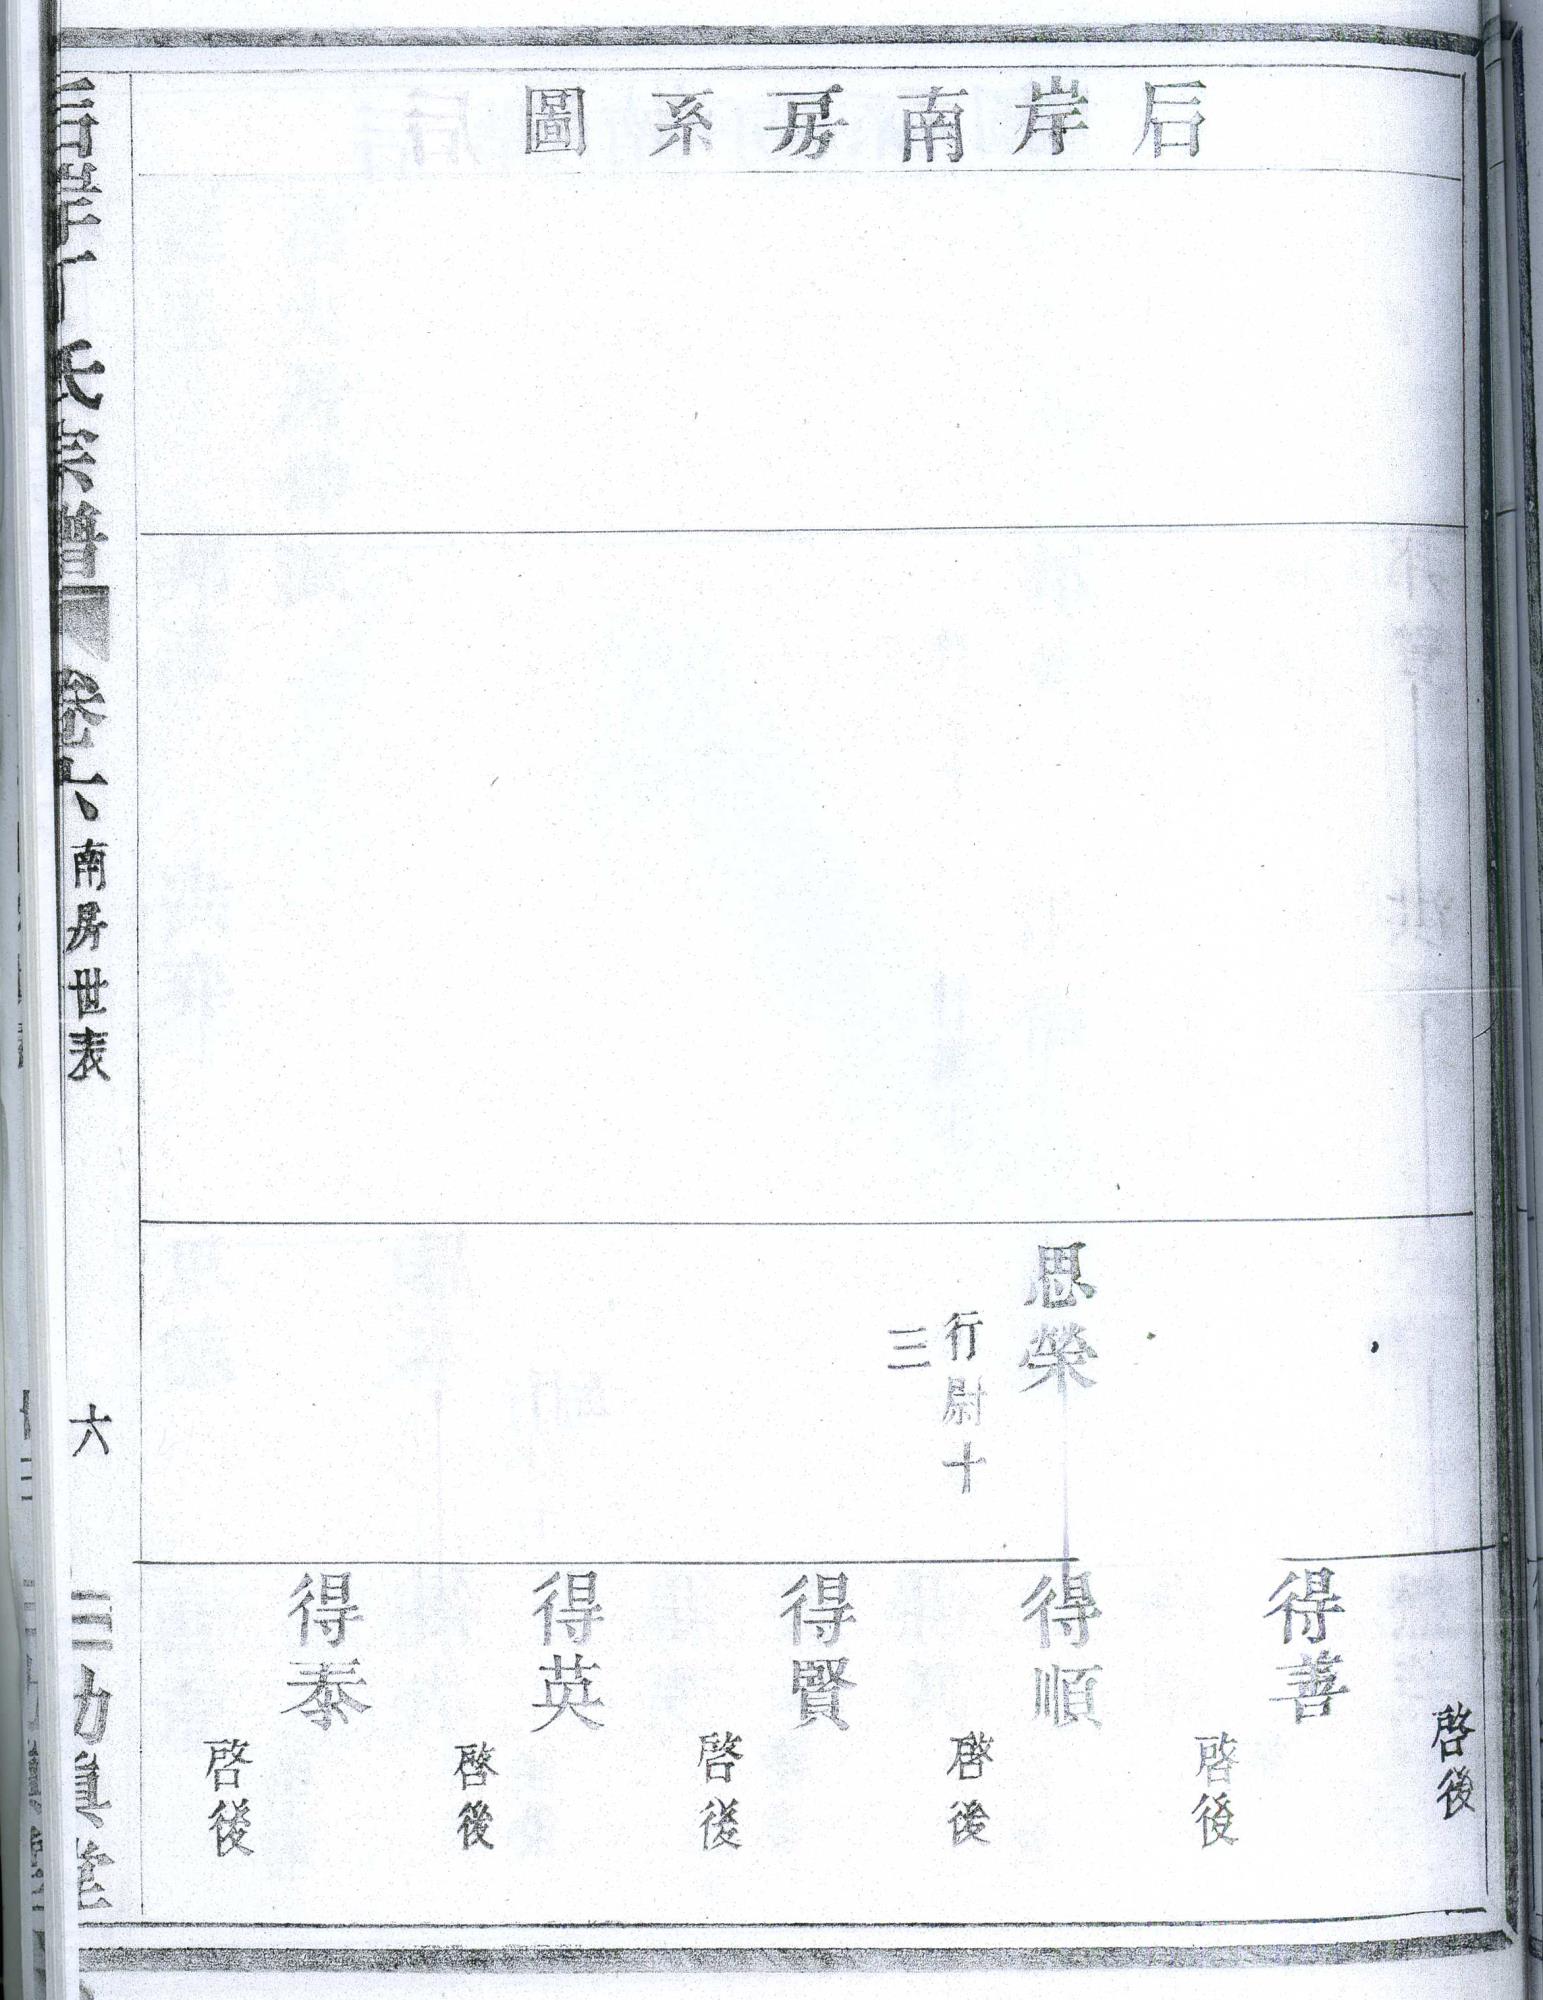 后岸南房系圖
思榮
行尉十
三
啓後
得善
啓後
得順
啓後
得賢
啓後
得英
啓後
得泰
啓後
氏宗譜
卷六
南房世表
六